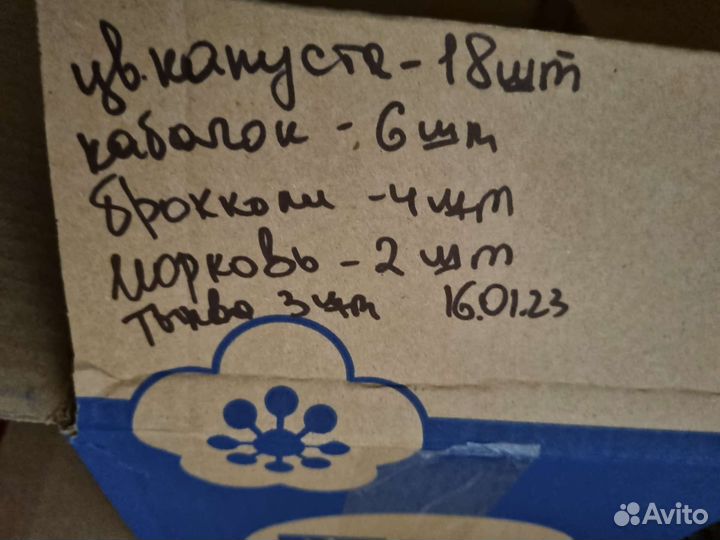 цв. капуста - 18 шт
кабачок - 6 шт
брокколи - 4 шт
морковь - 2 шт
тыква 3 шт 16.01.23
Avito